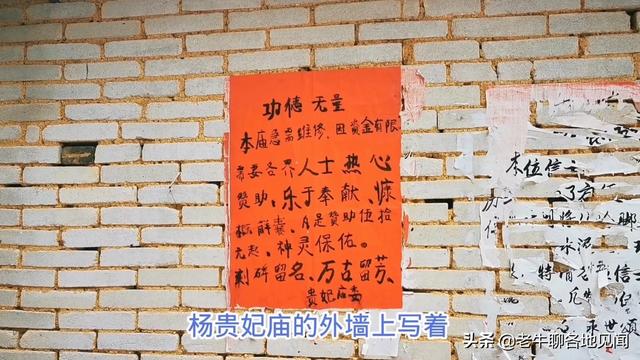 功德 无量
本庙急需维修、因资金有限
需要各界人士热心
赞助、乐于奉献、慷
慨解囊、凡是赞助伍拾
元起、神灵保佑。
刻碑留名、万古留芳、
贵妃庙委
本位信士
水泥
特情
永世颂
杨贵妃庙的外墙上写着
头条 @老牛聊各地见闻